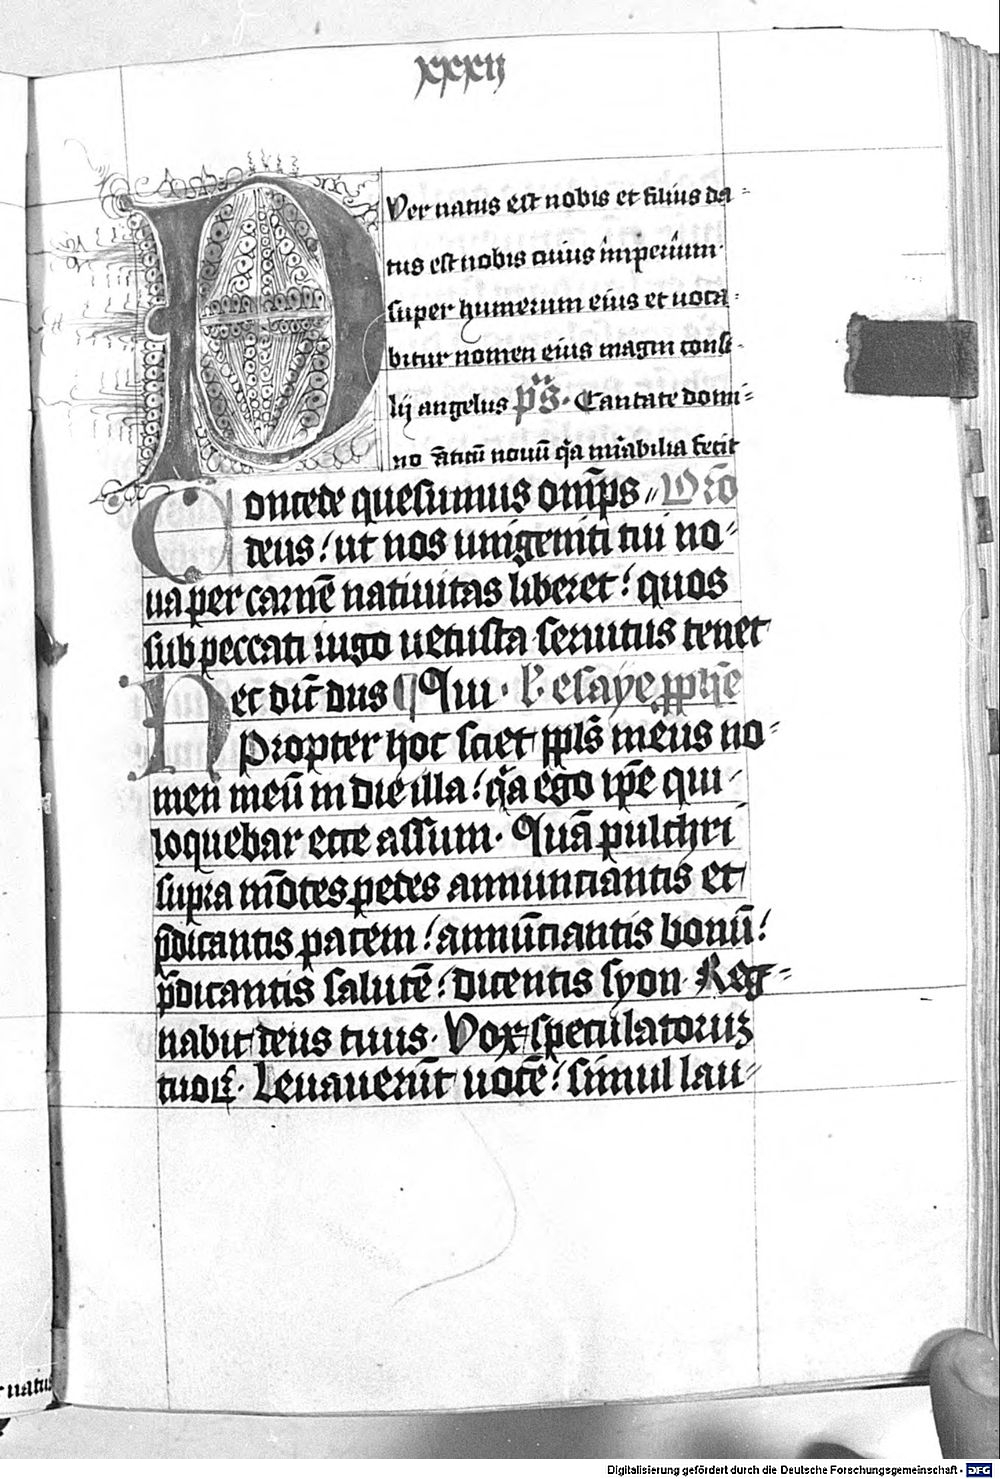 xxxij
PVer natus est nobis et filius da-
tus est nobis cuius imperium
super humerum eius et uoca-
bitur nomen eius magni consi-
lij angelus p̄s. Cantate domi-
no cāticū nouū q̄a mirabilia fecit
Concede quesumus om̄ps Oro
deus ut nos unigeniti tui no-
ua per carnē natiuitas liberet quos
sub peccati iugo uetusta seruitus tenet
Hec dīt dn̄s Qui. L. esaye pph̄e
Propter hoc sciet ppl̄s meus no-
men meū in die illa q̄a ego ip̄e qui
loquebar ecce assum. Quā pulchri
supra mōtes pedes annunciantis et
p̄dicantis pacem annūciantis bonū
p̄dicantis salutē dicentis syon Reg-
nabit deus tuus. Vox speculatoruꝫ
tuoꝝ. Leuauerūt uocē simul lau-
natus
Digitalisierung gefördert durch die Deutsche Forschungsgemeinschaft - DFG